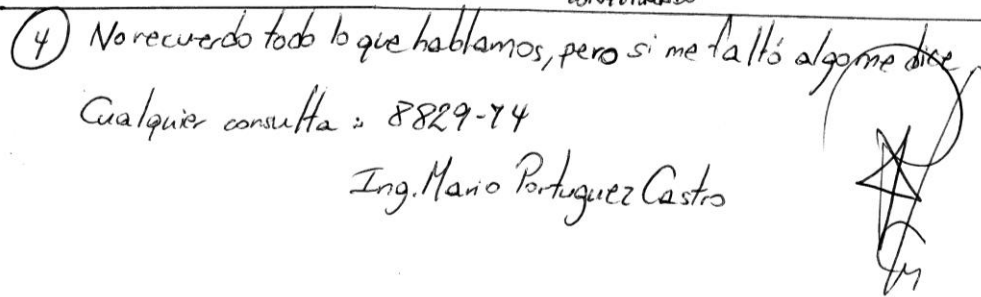 ④ No recuerdo todo lo que hablamos, pero si me faltó algo me dice
Cualquier consulta: 8829-74
Ing. Mario Portuguez Castro